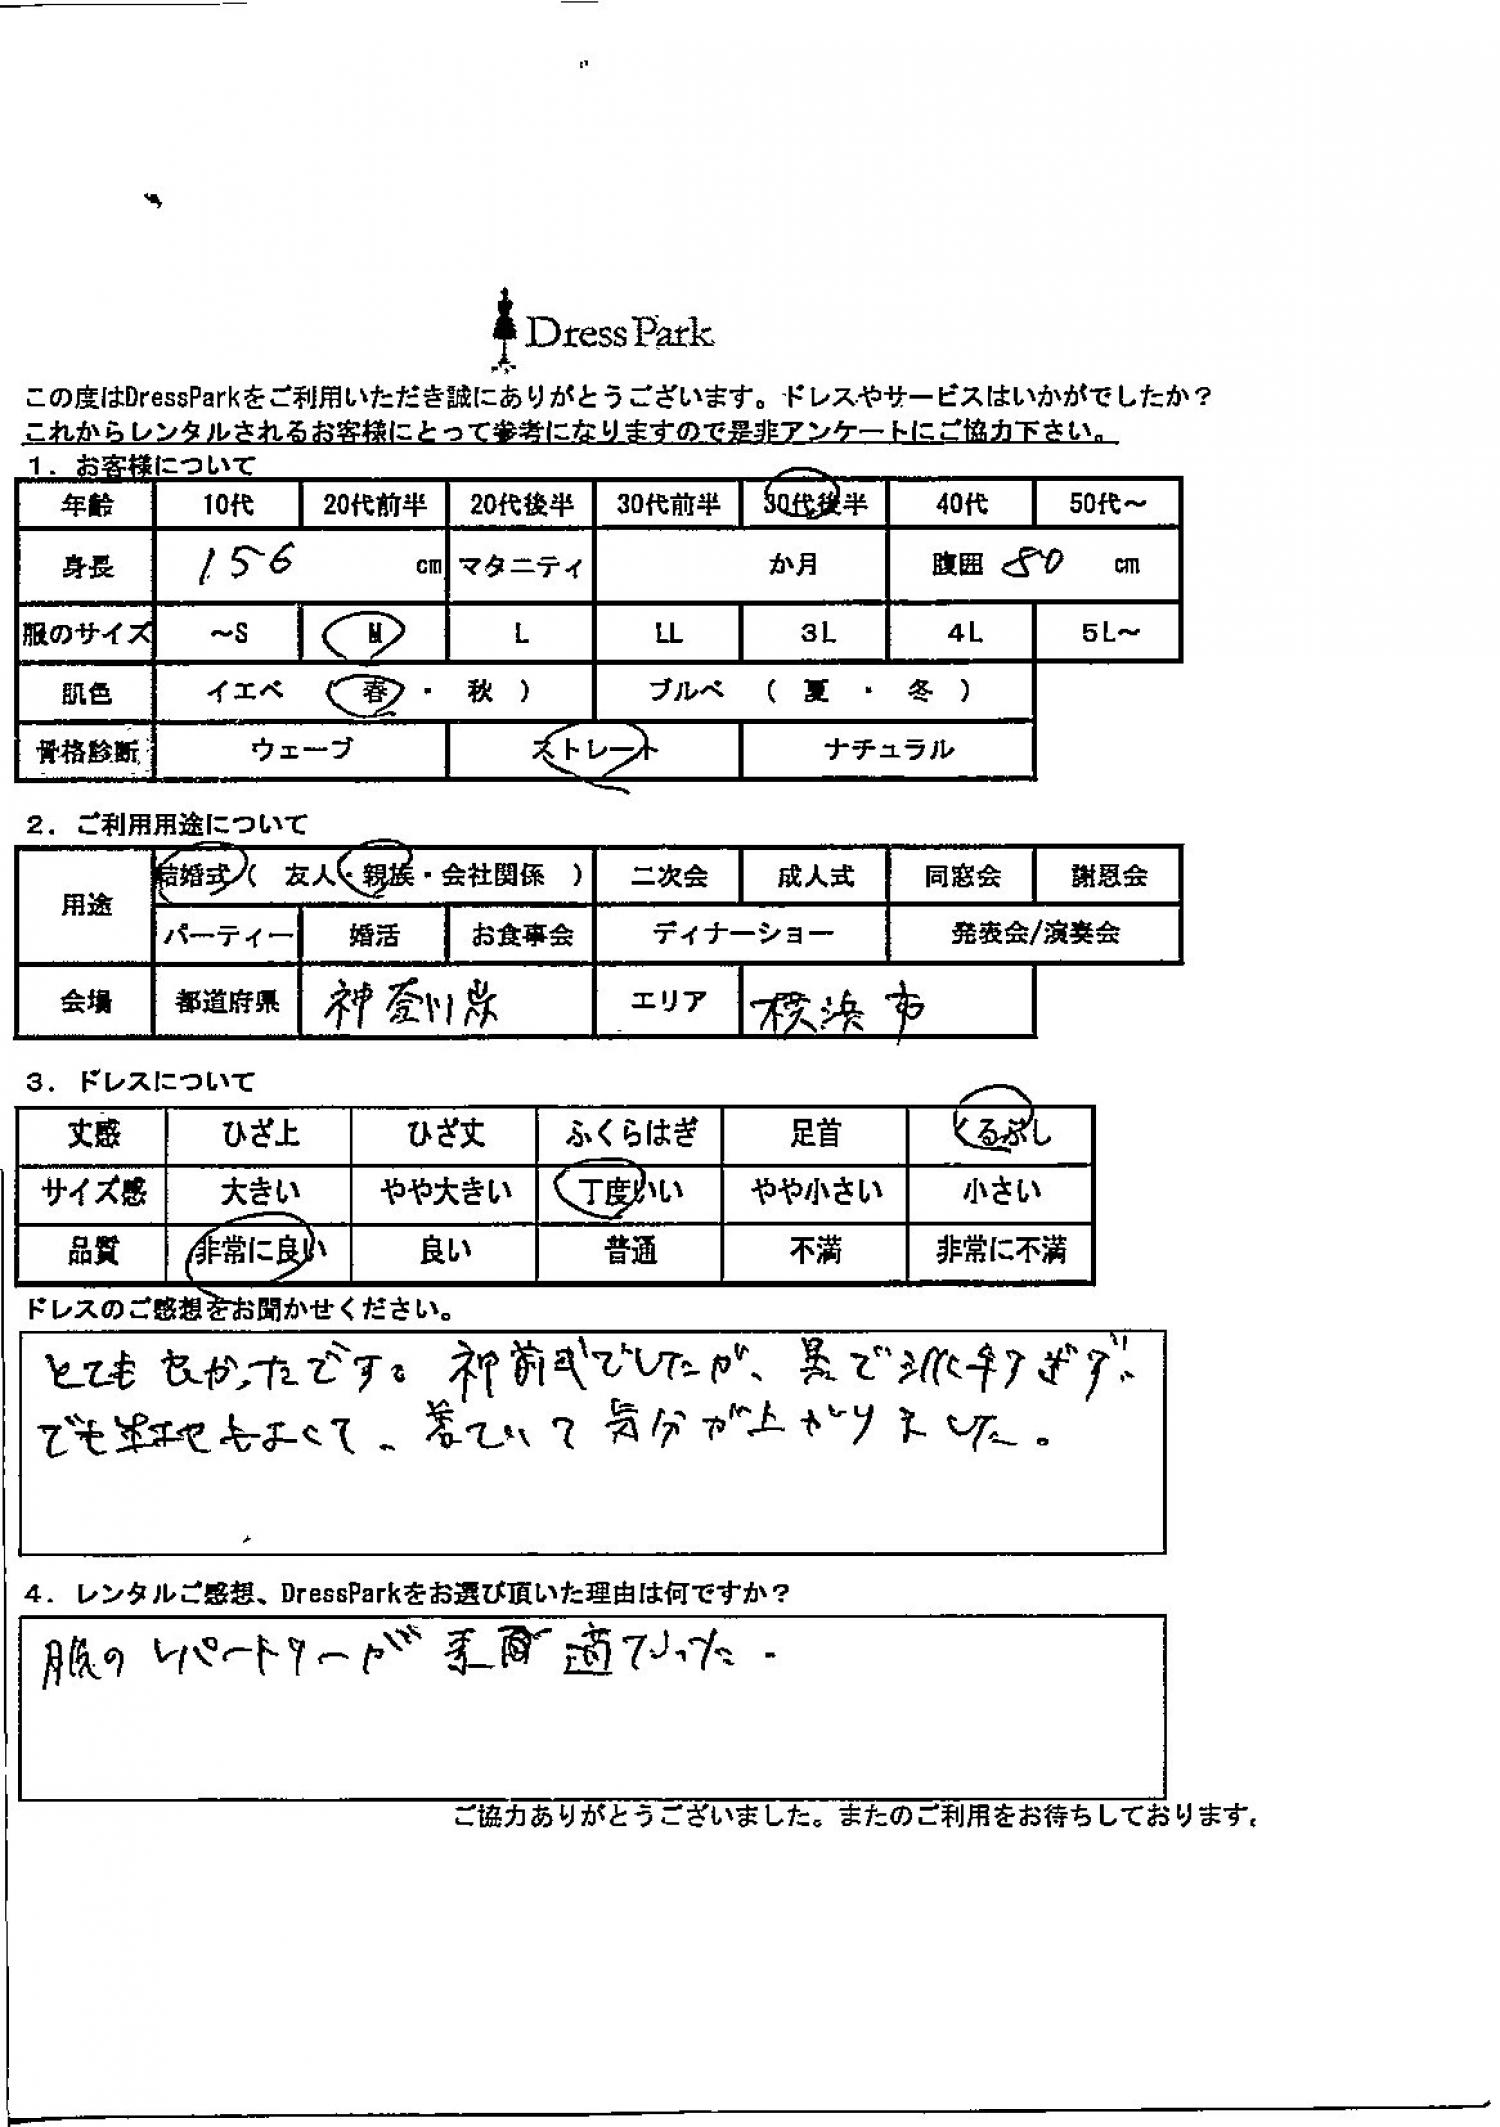 Dress Park
この度はDressParkをご利用いただき誠にありがとうございます。ドレスやサービスはいかがでしたか？
これからレンタルされるお客様にとって参考になりますので是非アンケートにご協力下さい。
１．お客様について
年齢 10代 20代前半 20代後半 30代前半 30代後半 40代 50代～
身長 156 cm マタニティ か月 腹囲 80 cm
服のサイズ ～S M L LL 3L 4L 5L～
肌色 イエベ （ 春 ・ 秋 ） ブルベ （ 夏 ・ 冬 ）
骨格診断 ウェーブ ストレート ナチュラル
２．ご利用用途について
用途 結婚式（ 友人・親族・会社関係 ） 二次会 成人式 同窓会 謝恩会
パーティー 婚活 お食事会 ディナーショー 発表会/演奏会
会場 都道府県 神奈川県 エリア 横浜市
３．ドレスについて
丈感 ひざ上 ひざ丈 ふくらはぎ 足首 くるぶし
サイズ感 大きい やや大きい 丁度いい やや小さい 小さい
品質 非常に良い 良い 普通 不満 非常に不満
ドレスのご感想をお聞かせください。
とても良かったです。神前式でしたが、黒で派手すぎず、
でも生地もよくて、着ていて気分が上がりました。
４．レンタルご感想、DressParkをお選び頂いた理由は何ですか？
服のレパートリーが
ご協力ありがとうございました。またのご利用をお待ちしております。